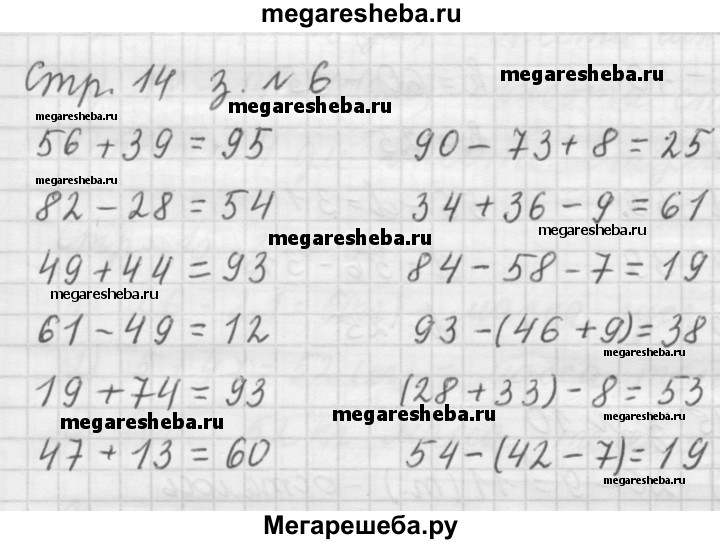 megaresheba.ru
Стр. 14 з. № 6
megaresheba.ru
megaresheba.ru
megaresheba.ru
56 + 39 = 95
90 - 73 + 8 = 25
megaresheba.ru
82 - 28 = 54
34 + 36 - 9 = 61
megaresheba.ru
megaresheba.ru
49 + 44 = 93
84 - 58 - 7 = 19
megaresheba.ru
61 - 49 = 12
93 - (46 + 9) = 38
megaresheba.ru
19 + 74 = 93
(28 + 33) - 8 = 53
megaresheba.ru
megaresheba.ru
megaresheba.ru
47 + 13 = 60
54 - (42 - 7) = 19
megaresheba.ru
Мегарешеба.ру